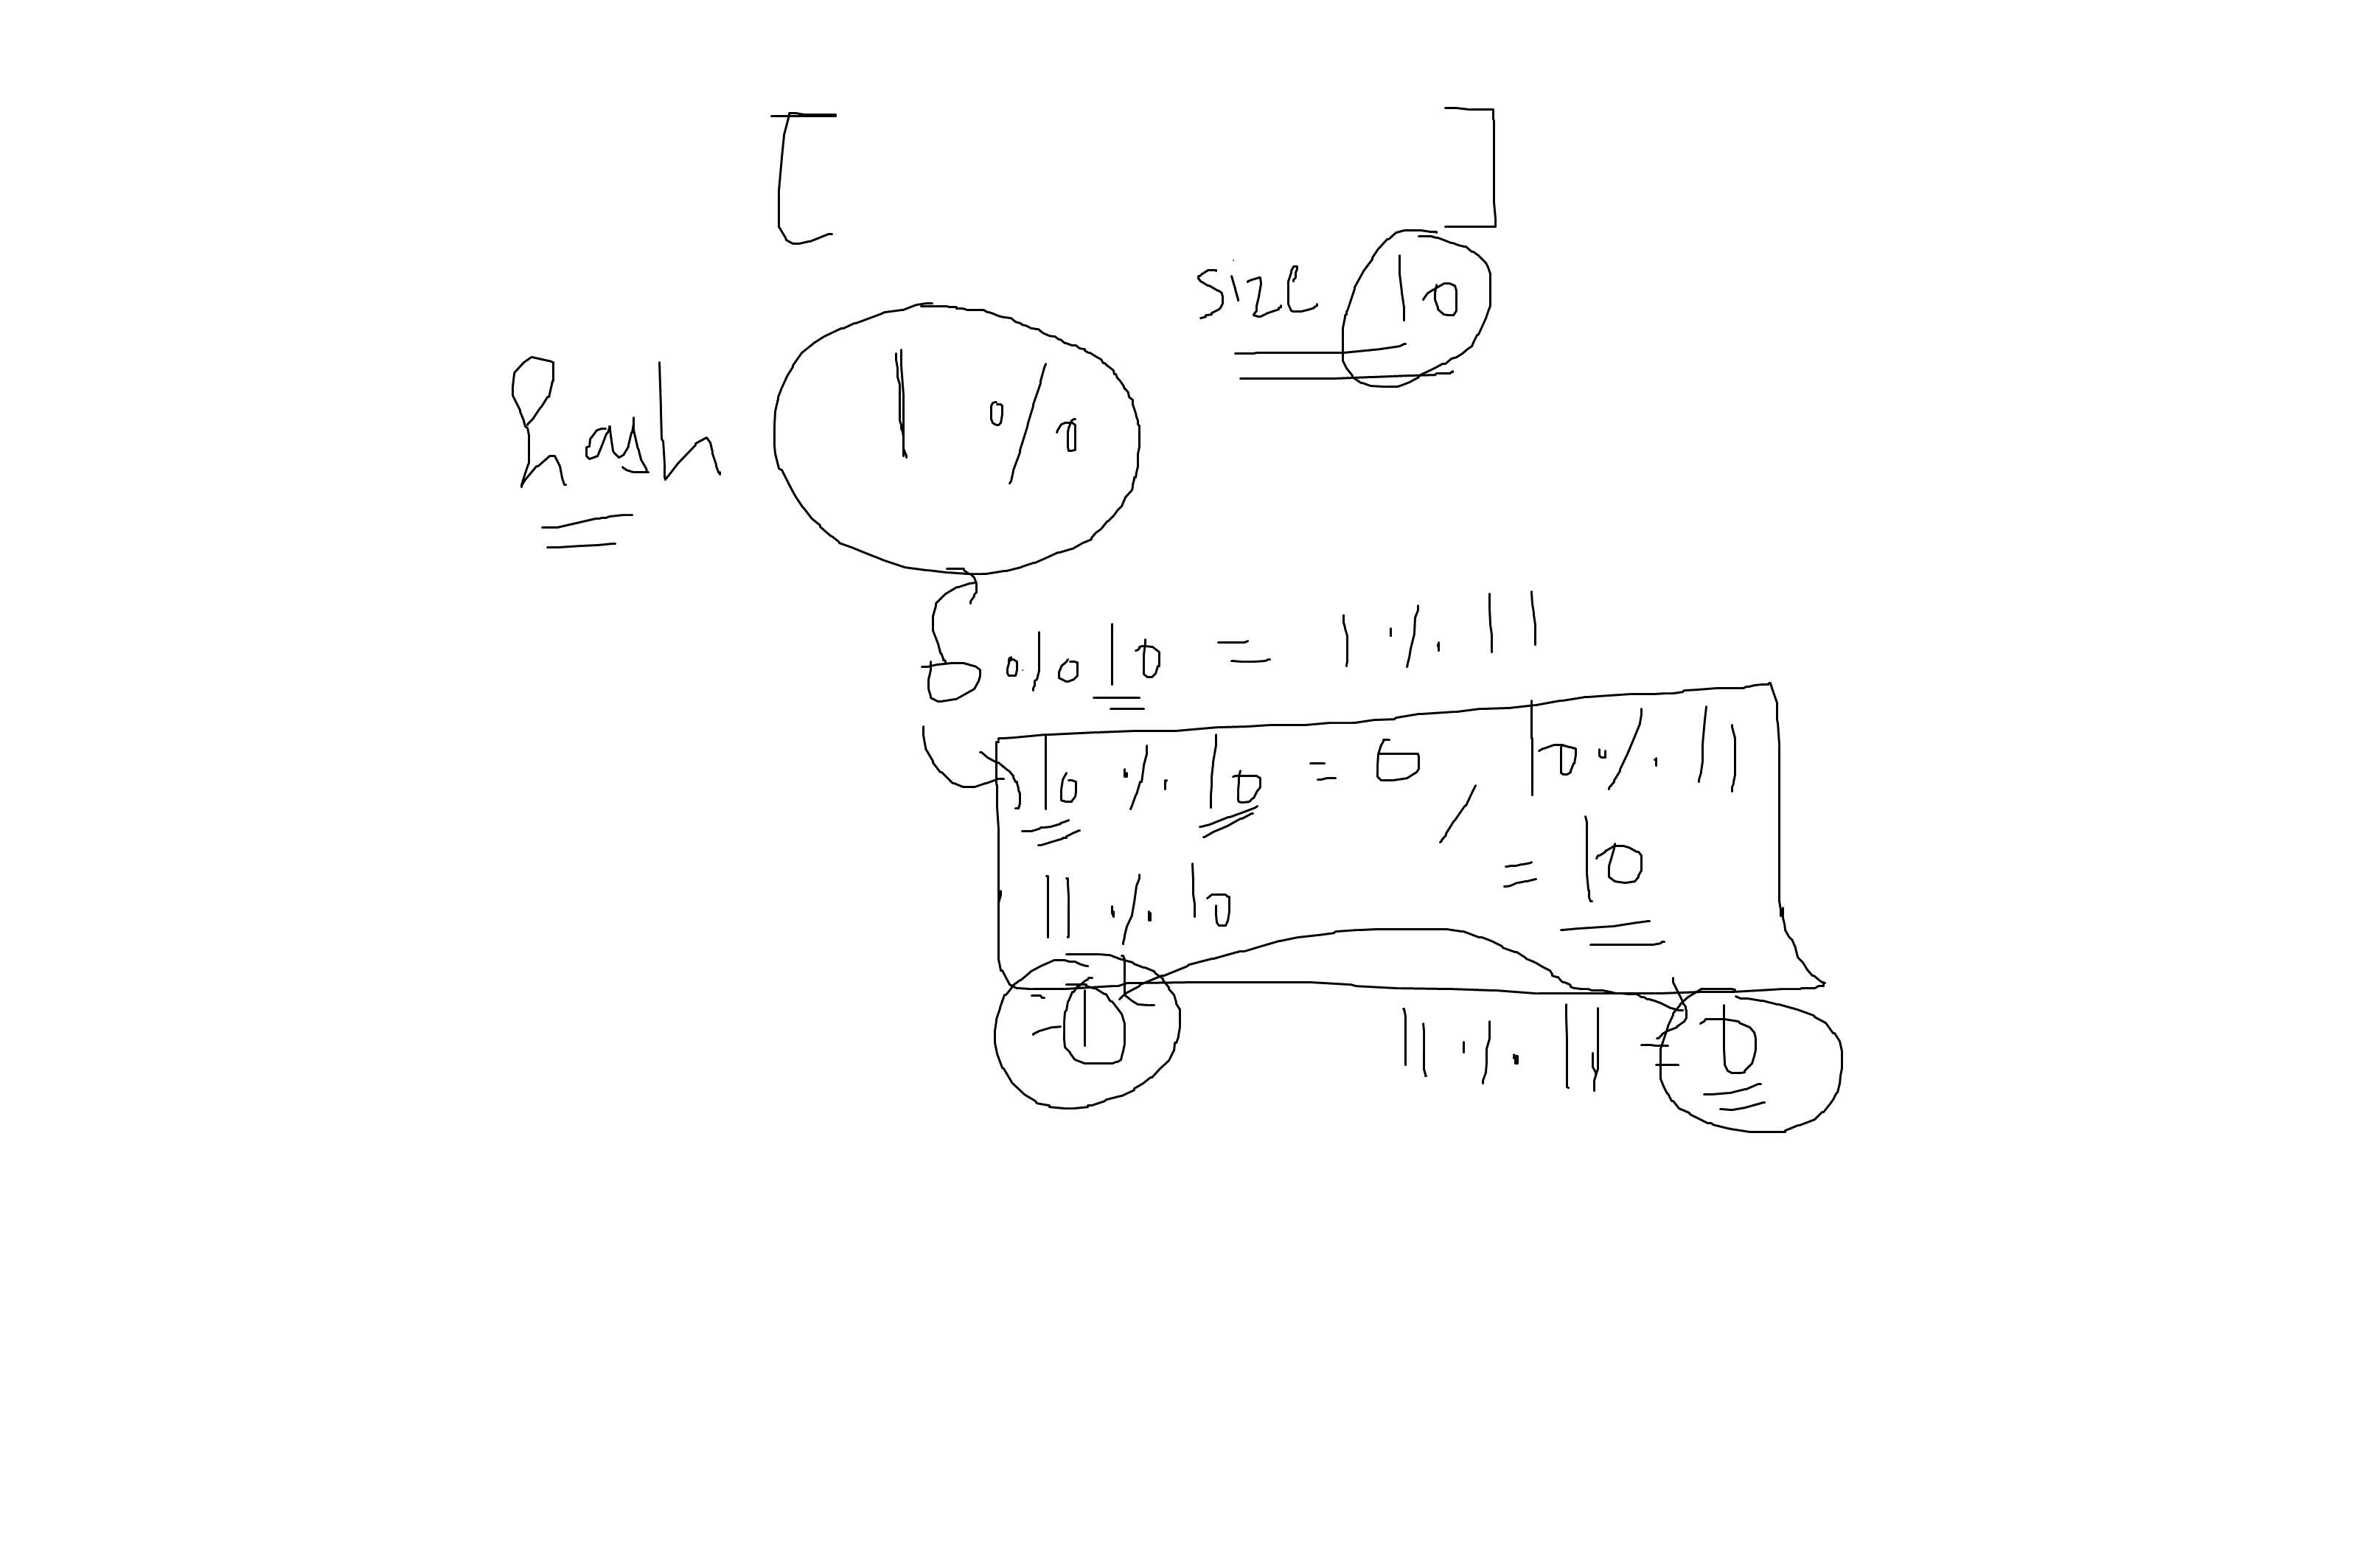 [ ]
size 10
hash 1 %
0 % 10 = 1 % 11
10 % 10 = 0 , 10 % 11
= 10
11 % 10
= 1
11 % 11 = 0